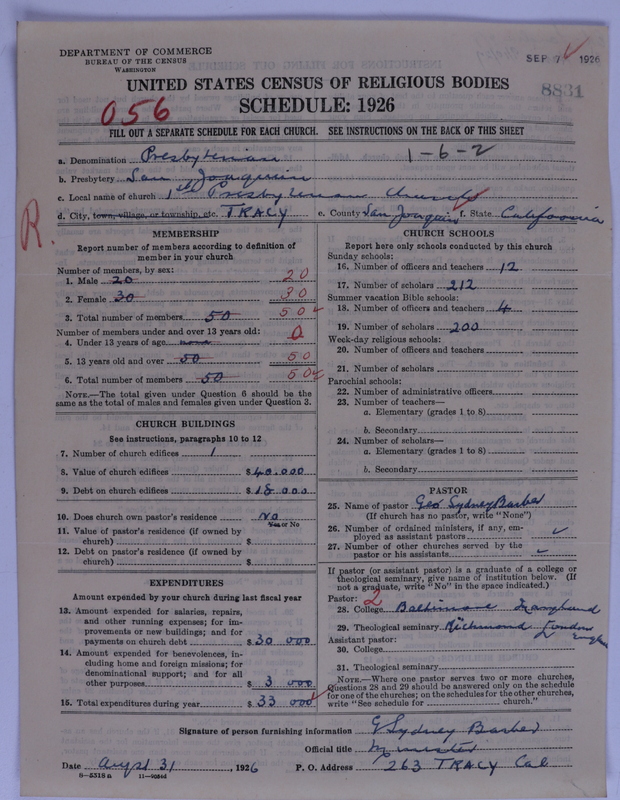 DEPARTMENT OF COMMERCE
BUREAU OF THE CENSUS
WASHINGTON
SEP 7 1926
8831
UNITED STATES CENSUS OF RELIGIOUS BODIES
SCHEDULE: 1926
056
FILL OUT A SEPARATE SCHEDULE FOR EACH CHURCH. SEE INSTRUCTIONS ON THE BACK OF THIS SHEET
1-6-2
a. Denomination Presbyterian
b. Presbytery San Joaquin
c. Local name of church 1st Presbyterian Church
d. City, town, village, or township, etc. TRACY e. County San Joaquin f. State California
R.
MEMBERSHIP
Report number of members according to definition of member in your church
Number of members, by sex:
1. Male 20 20
2. Female 30 30
3. Total number of members 50 50
Number of members under and over 13 years old:
4. Under 13 years of age none 0
5. 13 years old and over 50 50
6. Total number of members 50 50
NOTE.—The total given under Question 6 should be same as the total of males and females given under Question 3.
CHURCH BUILDINGS
See instructions, paragraphs 10 to 12
7. Number of church edifices 1
8. Value of church edifices $ 40.000
9. Debt on church edifices $ 18.000
10. Does church own pastor's residence No
Yes or No
11. Value of pastor's residence (if owned by church) $
12. Debt on pastor's residence (if owned by church) $
EXPENDITURES
Amount expended by your church during last fiscal year
13. Amount expended for salaries, repairs, and other running expenses; for improvements or new buildings; and for payments on church debt $ 30 000
14. Amount expended for benevolences, including home and foreign missions; for denominational support; and for all other purposes $ 3 000
15. Total expenditures during year $ 33 000
CHURCH SCHOOLS
Report here only schools conducted by this church
Sunday schools:
16. Number of officers and teachers 12
17. Number of scholars 212
Summer vacation Bible schools:
18. Number of officers and teachers 4
19. Number of scholars 200
Week-day religious schools:
20. Number of officers and teachers
21. Number of scholars
Parochial schools:
22. Number of administrative officers
23. Number of teachers—
a. Elementary (grades 1 to 8)
b. Secondary
24. Number of scholars—
a. Elementary (grades 1 to 8)
b. Secondary
PASTOR
25. Name of pastor Geo Sydney Barber
(If church has no pastor, write "None")
26. Number of ordained ministers, if any, employed as assistant pastors
27. Number of other churches served by the pastor or his assistants
If pastor (or assistant pastor) is a graduate of a college or theological seminary, give name of institution below. (If not a graduate, write "No" in the space indicated.)
Pastor: 2
28. College Baltimore Maryland
29. Theological seminary Richmond London
Assistant pastor:
30. College
31. Theological seminary
NOTE.—Where one pastor serves two or more churches, Questions 28 and 29 should be answered only on the schedule for one of the churches; on the schedules for the other churches, write "See schedule for church."
Signature of person furnishing information G Sydney Barber
Official title Minister
Date Augst 31, 1926 P. O. Address 263 TRACY Cal
8—5318a 11—9054d